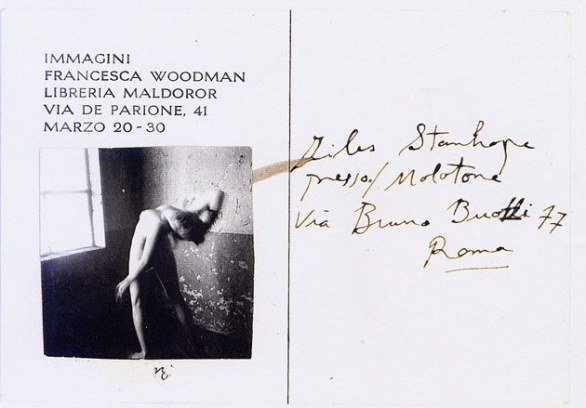 IMMAGINI
FRANCESCA WOODMAN
LIBRERIA MALDOROR
VIA DE PARIONE, 41
MARZO 20 - 30
Stanhope
presso/Molotone
Via Bruno Buozzi 77
Roma